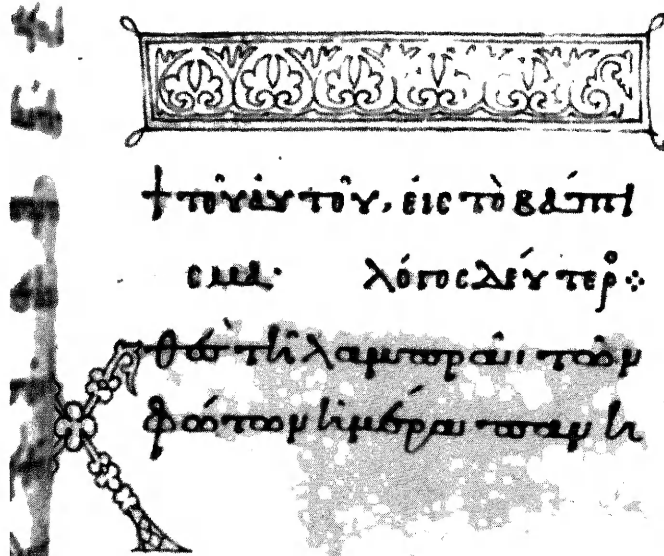 + τοῦ αὐτοῦ, εἰς τὸ βάπτι
σμα· λόγος δεύτερο⁘
Χθὲς τῆι λαμπρᾶι τῶν
φώτων ἡμέραι πανη